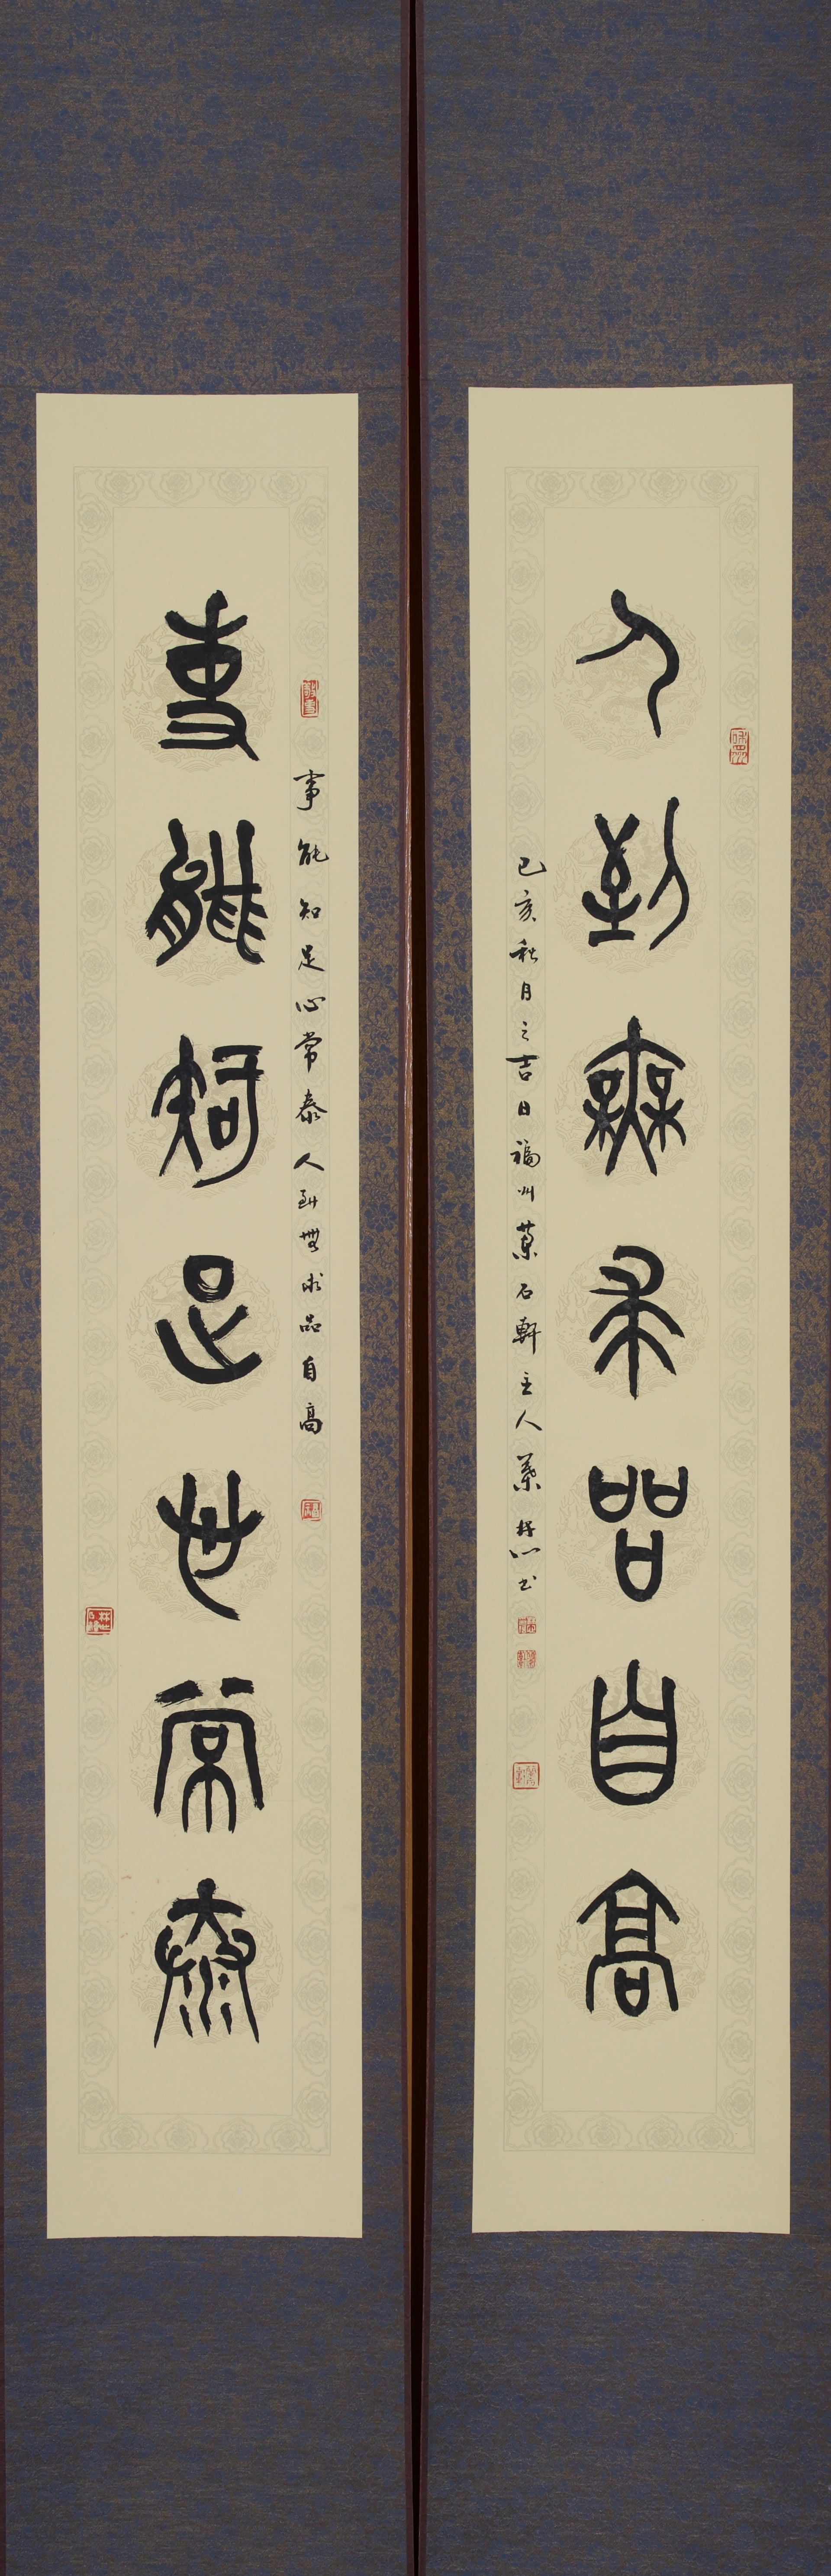 人到無求品自高
己亥秋月之吉日福州石軒主人書
事能知足心常泰人到無求品自高
事能知足心常泰